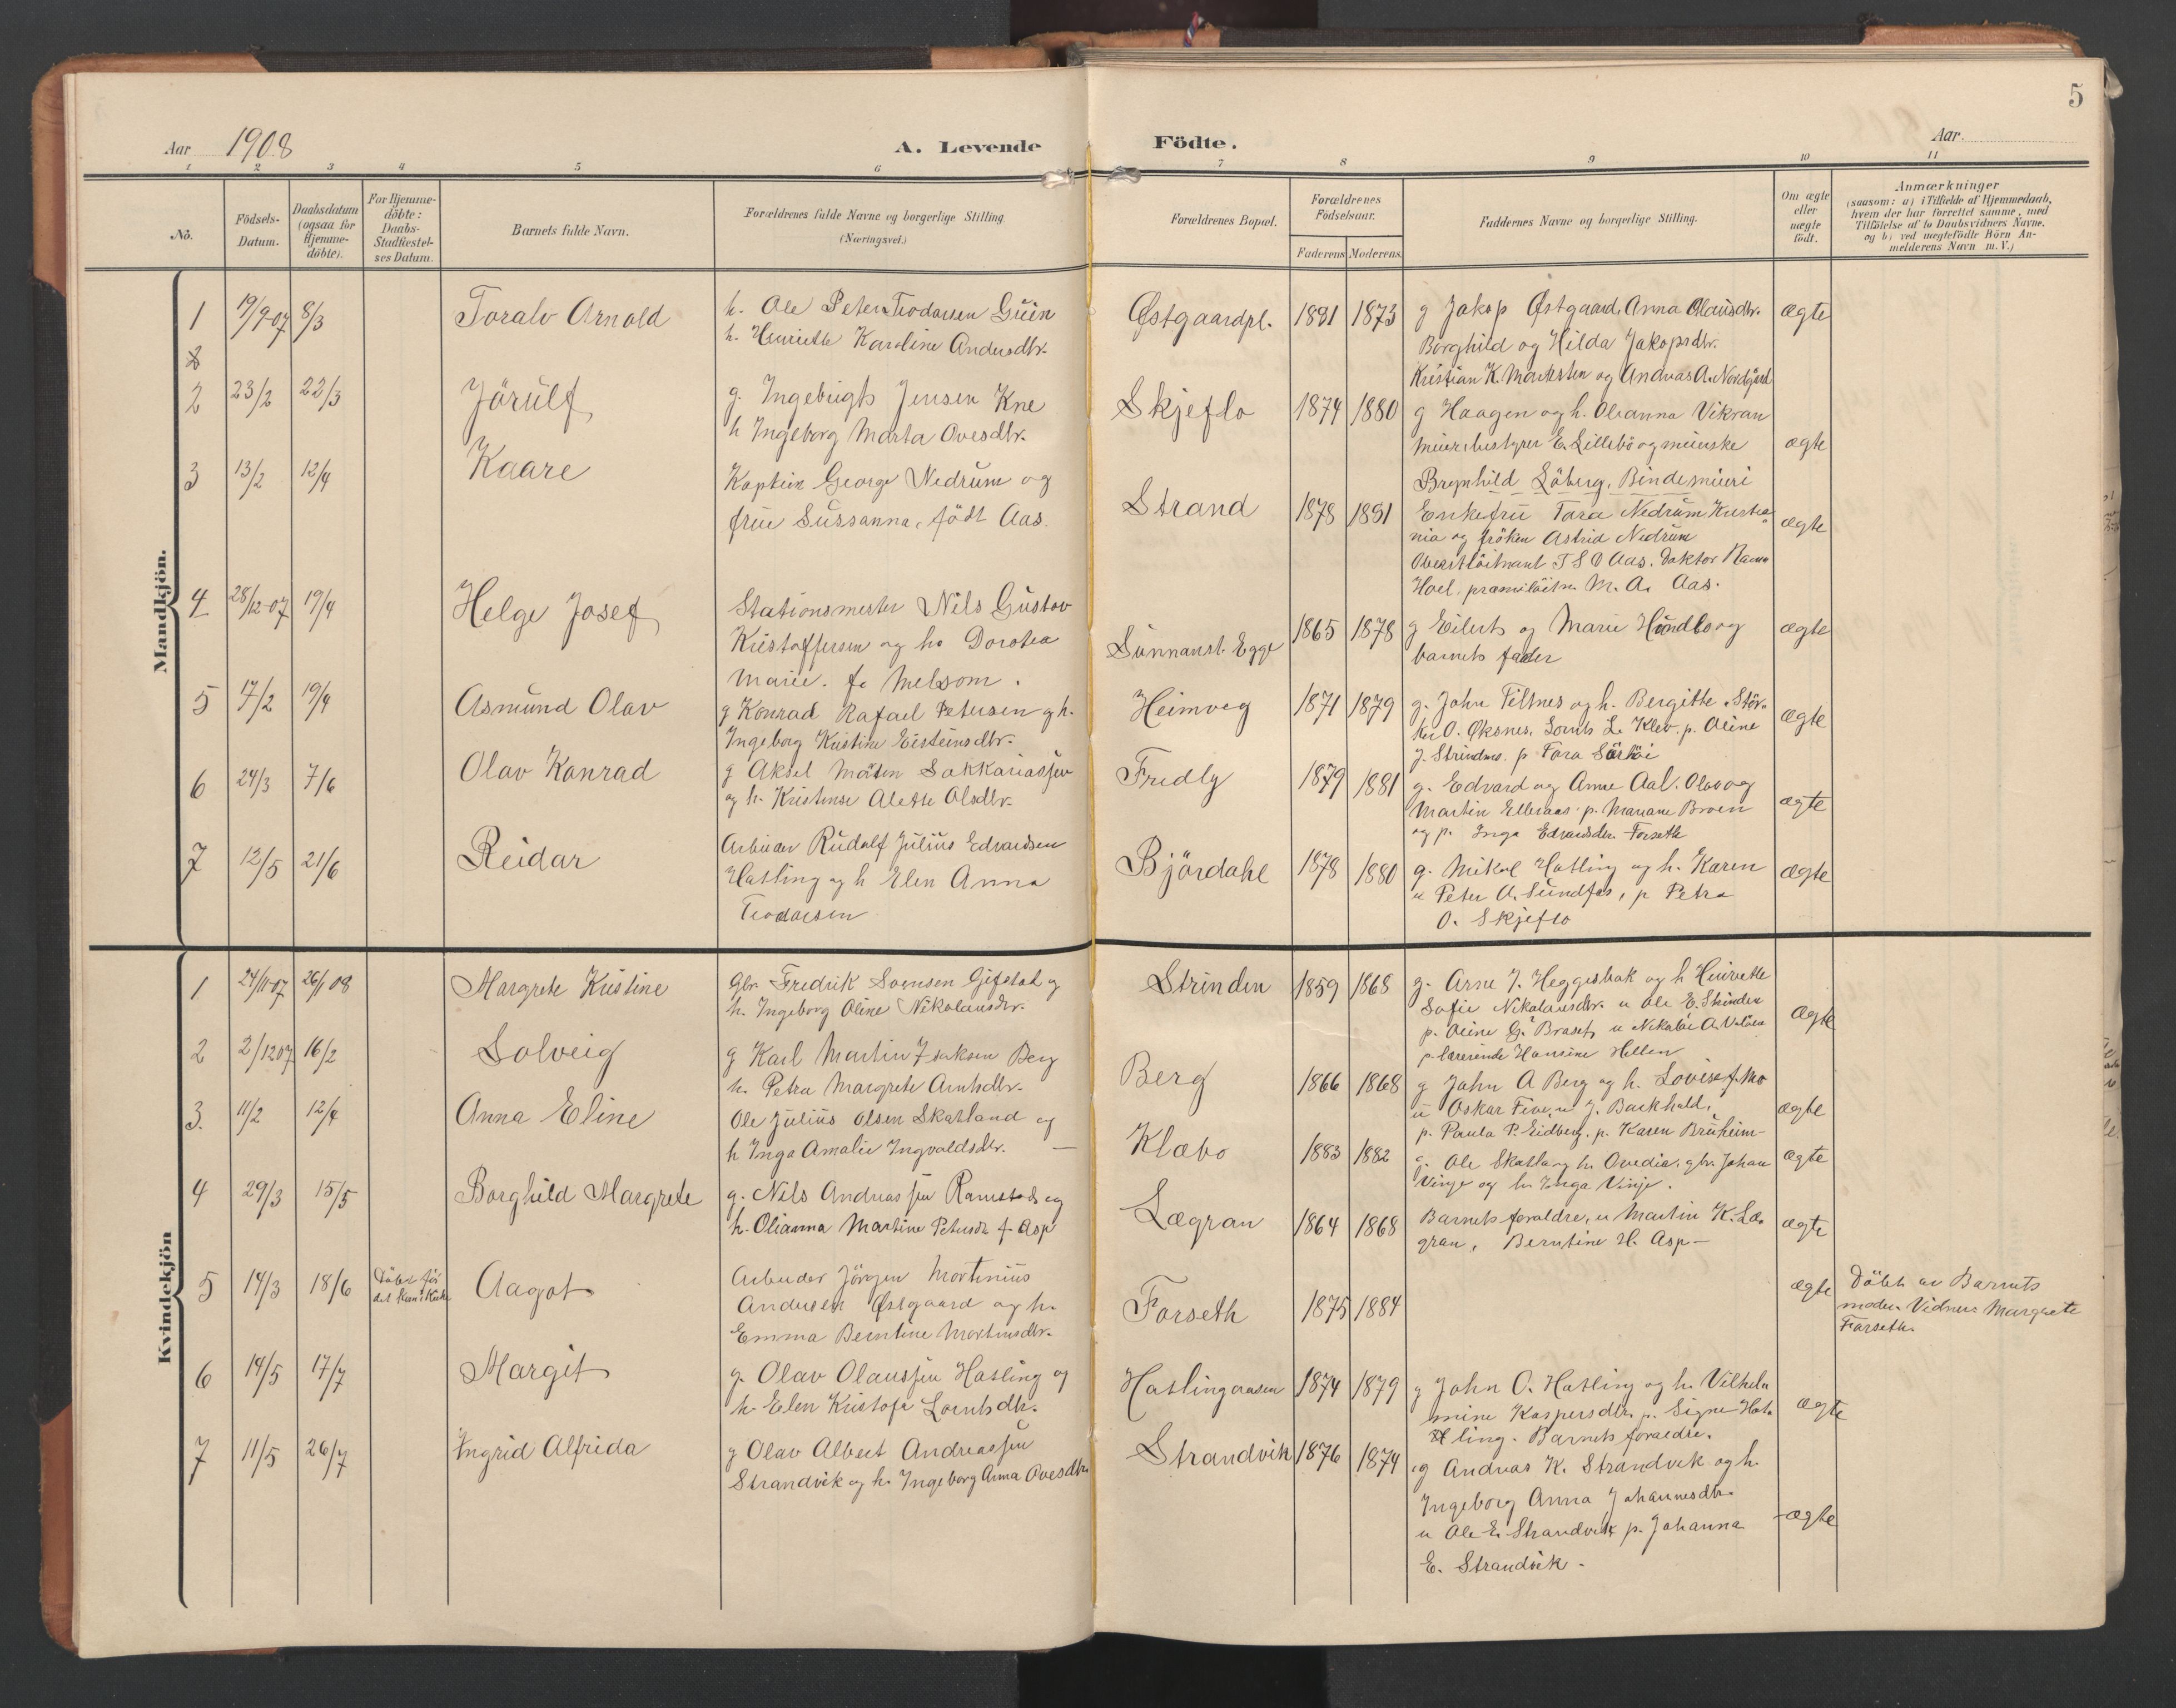 5
Aar 1908
A. Levende Födte.
Aar
1 2 3 4 5 6 7 8 9 10 11
No.
Födsels-Datum.
Daabsdatum (ogsaa for Hjemme-döbte).
For Hjemme-döbte: Daabs-Stadfæstel-ses Datum.
Barnets fulde Navn.
Forældrenes fulde Navne og borgerlige Stilling.
(Næringsvei.)
Forældrenes Bopæl.
Forældrenes Födselsaar.
Faderens Moderens
Faddernes Navne og borgerlige Stilling.
Om ægte eller uægte födt.
Anmærkninger
(saasom: a) i Tilfælde af Hjemmedaab, hvem der har forrettet samme, med Tilföielse af to Daabsvidners Navne. og b) ved uægtefödte Börn An-melderens Navn m. V.)
Mandkjön.
1 19/9-07 8/3 Toralv Arnold
h. Ole Peter Teodorsen Guin
h. Henriette Karoline Andersdtr.
Østgaardpl. 1881 1873
g Jakop Østgaard, Anna Olausdtr.
Borghild og Hilda Jakopsdtr.
Kristian K. Marksten og Andreas A. Nordgård
ægte
2
2 23/2 22/3 Jörulf
g. Ingebrigts Jensen Kne
h Ingeborg Marta Ovesdtr.
Skjeflo 1874 1880
g Haagen og h. Olianna Vikran
meieribestyrer E. Lillebö og meierske
Brynhild Löberg, Bindesmeieri
ægte
3 13/2 12/4 Kaare
Kaptein George Nedrum og
frue Sussanna, födt Aas.
Strand 1878 1881
Enkefru Tara Nedrum Kristia
nia og fröken Astrid Nedrum
Oberstlöitnant T S O Aas. Doktor
Hoel, premilöitn. M. A. Aas.
ægte
4 28/12-07 19/4 Helge Josef
Stationsmester Nils Gustav
Kristoffersen og h. Dorotea
Marie. f. Melsom.
Sunnanst. Egge 1865 1878
g Eilerts og Marie Hindborg
barnets fader
ægte
5 17/2 19/4 Asmund Olav
g Konrad Rafael Petersen g h.
Ingeborg Kristine Eisteinsdtr.
Heimveg 1871 1879
g. John Tiltnes og h. Bergitte. Stör-
ker O. Øksnes, Lornts L. Klev. p. Oline
J. Strindmo. p Tora Sörlöi
ægte
6 24/3 7/6 Olav Konrad
g Aksel Möten Sakkariassen
og h. Kristense Alette Olsdtr.
Fredly 1879 1881
g. Edvard og Anne Aal. Olav og
Martin Elberaas p. Mariane Broen
og p. Inga Edvardsdtr. Forseth
ægte
7 12/5 21/6 Reidar
Arbeider Rudolf Julius Edvardsen
Hatling og h Elen Anna
Teodorsen
Björdahl 1878 1880
g. Mikal Hatling og h. Karen
u Peter A. Sundfær, p Petra
O. Skjeflo
ægte
Kvindekjön
1 24/11-07 26/1 08 Margrete Kristine
Gbr. Fredrik Svensen Gifstad g
h. Ingeborg Oline Nikolausdtr.
Strinden 1859 1868
g. Arne J. Heggesbak og h Henriette
Sofie Nikolausdtr. u Ole E. Strinden
p. Oline G. Braset, u Nikolai A.
p. lærerinde Hansine Hellem
ægte
2 2/12 07 16/2 Solveig
g Karl Martin Isaksen Berg
h. Petra Margrete Arntsdtr.
Berg 1866 1868
g John A Berg og h. Lovise f. Mo
u Oskar Five, u J. Buckhold,
p. Paula P. Eidberg. p. Karen Bruheim-
ægte
3. 11/2 12/4 Anna Eline
Ole Julius Olsen Skatland og
h Inga Amalie Ingvaldsdtr. —
Klæbo 1883 1882
g. Ole Skatland h. Ovedia, gbr. Johan
Vinje og h. Inga Vinje.
ægte
4 29/3 15/5 Borghild Margrete
g. Nils Andreassen Ramstad og
h. Olianna Martine Petersdtr f. Asp
Lægran 1864 1868
Barnets foraldre, u Martin K. Læ-
gran, Berntine H. Asp—
ægte
5 14/3 18/6 Döbt för det kom i Kirke
Aagot
Arbeider Jörgen Mortinius
Andersen Østgaard og h.
Emma Berntine Mortinsdtr.
Forseth 1875 1884
ægte
Döbt av Barnets
moder. Vidner Margrete
Forseth.
6 14/5 17/7 Margit
g. Olav Olaussen Hatling og
h. Elen Kristofa Lorntsdtr.
Hatlingaasen 1874 1879
g John O. Hatling og h. Vilhelm
mine Kaspersdtr. p. Signe Hat-
ling. Barnets foraldre.
ægte
7 11/5 26/7 Ingrid Alfrida
g Olav Albert Andreassen
Strandvik og h. Ingeborg Anna Ovesdtr.
Strandvik 1876 1874
g Andreas K. Strandvik og h.
Ingeborg Anna Johannesdtr.
u Ole E. Strandvik p. Johanna
E. Strandvik -
ægte